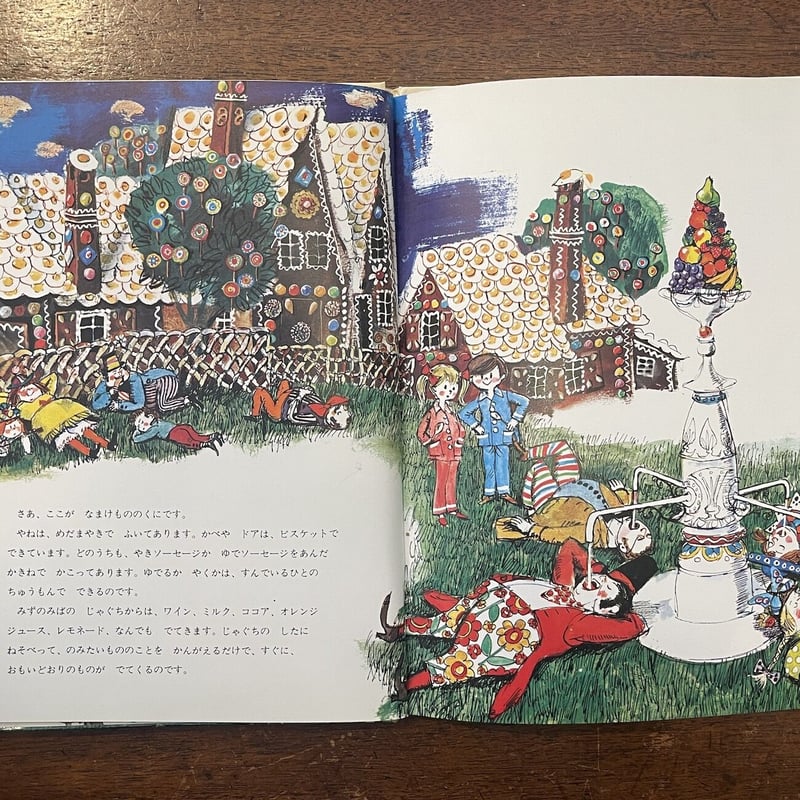 さあ、ここが　なまけもののくにです。
やねは、めだまやきで　ふいてあります。かべや　ドアは、ビスケットで
できています。どのうちも、やきソーセージか　ゆでソーセージをあんだ
かきねで　かこってあります。ゆでるか　やくかは、すんでいるひとの
ちゅうもんで　できるのです。
みずのみばの　じゃぐちからは、ワイン、ミルク、ココア、オレンジ
ジュース、レモネード、なんでも　でてきます。じゃぐちの　したに
ねそべって、のみたいもののことを　かんがえるだけで、すぐに、
おもいどおりのものが　でてくるのです。